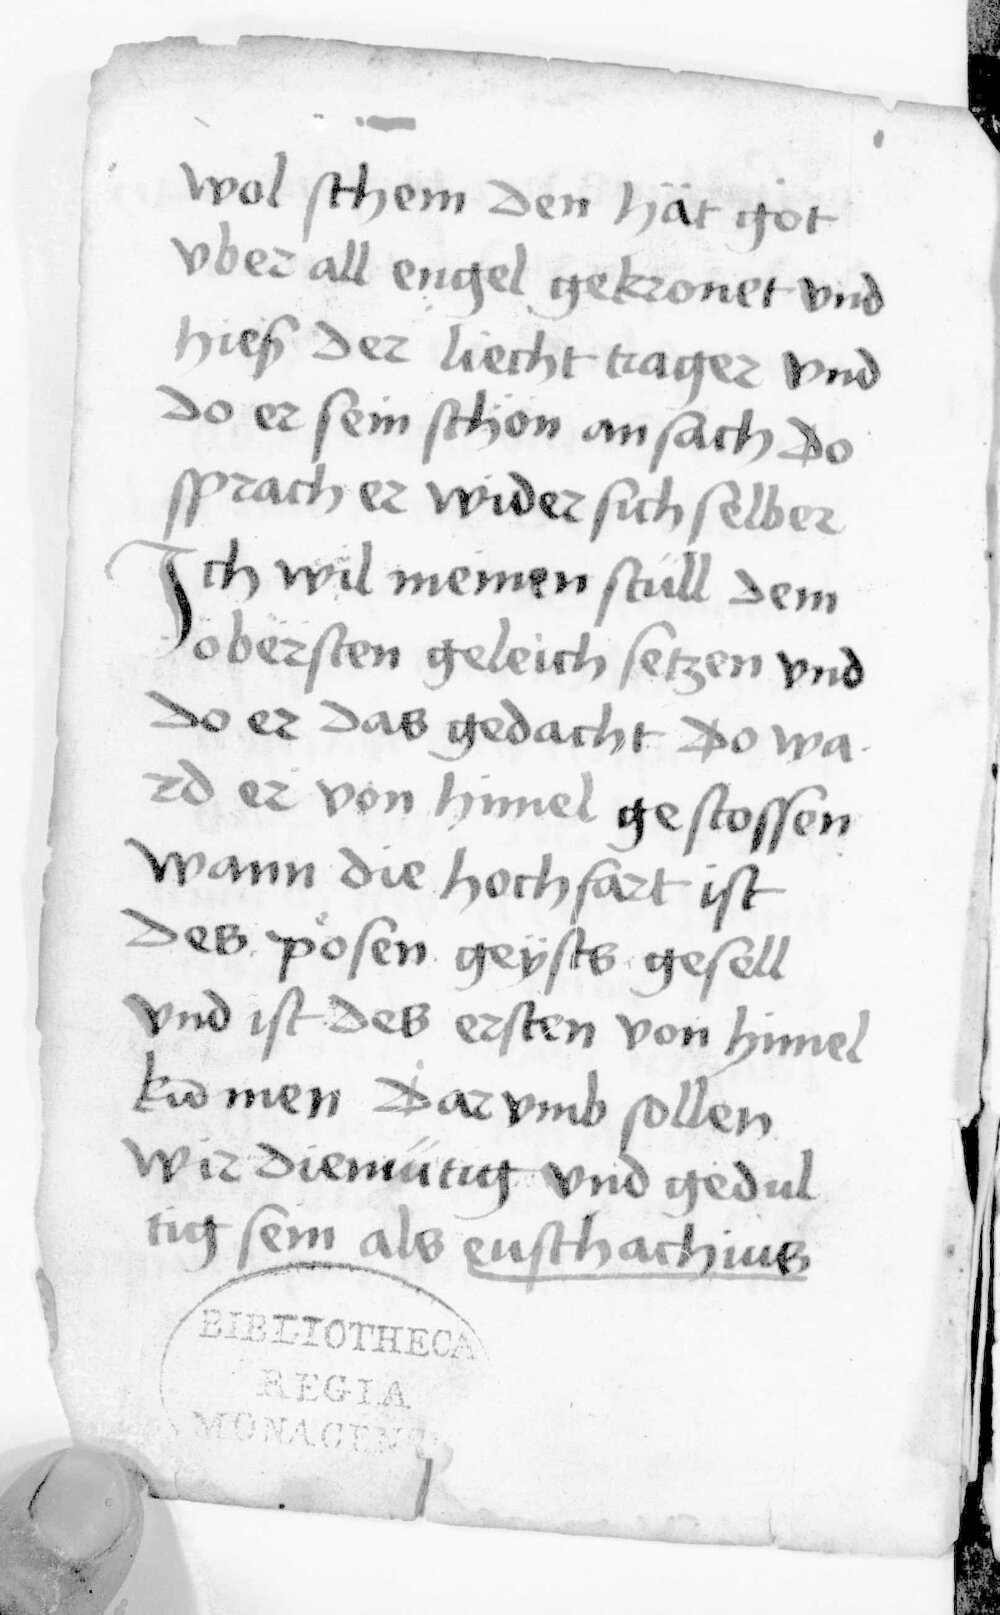 wol schem den hät got
vber all engel gekronet vnd
hieß der liecht trager vnd
do er sein schön an sach do
sprach er wider sich selber
Ich wil meinen stůll dem
obersten geleich setzen vnd
do er das gedacht do wa
rd er von himel gestossen
wann die hochfart ist
des põsen geÿsts gesell
vnd ist des ersten von himel
kumen dar vmb sollen
wir diemütig vnd gedul
tig sein als eusthachius
BIBLIOTHECA
REGIA
MONACENSIS